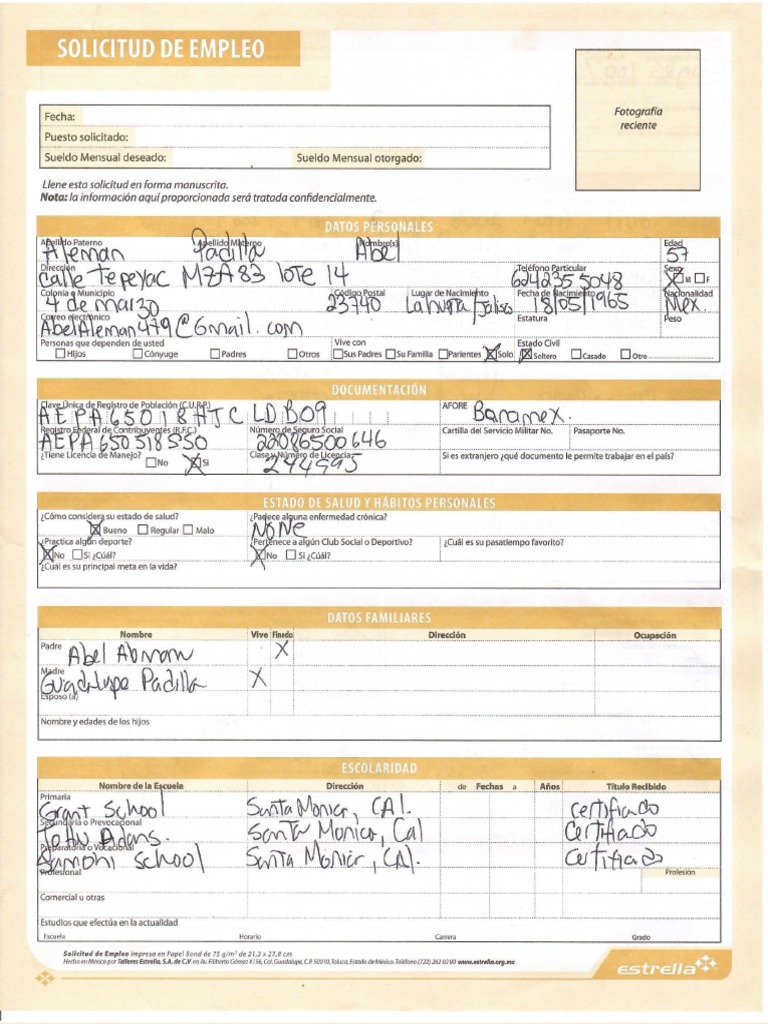 SOLICITUD DE EMPLEO
Fotografía
reciente
Fecha:
Puesto solicitado:
Sueldo Mensual deseado: Sueldo Mensual otorgado:
Llene esta solicitud en forma manuscrita.
Nota: la información aquí proporcionada será tratada confidencialmente.
DATOS PERSONALES
Apellido Paterno Apellido Materno Nombre(s) Edad
Aleman Padilla Abel 57
Dirección Teléfono Particular Sexo
calle Tepeyac MZA 83 lote 14 6242355048 M F
Colonia o Municipio Código Postal Lugar de Nacimiento Fecha de Nacimiento Nacionalidad
4 de marzo 23740 Jalisco 18/05/1965 Mex.
Correo electrónico Estatura Peso
AbelAleman479@Gmail.com
Personas que dependen de usted Vive con Estado Civil
Hijos Cónyuge Padres Otros Sus Padres Su Familia Parientes Solo Soltero Casado Otro
DOCUMENTACIÓN
Clave Única de Registro de Población (C.U.R.P.) AFORE
AEPA65018HJCLDB09 Banamex.
Registro Federal de Contribuyentes (R.F.C.) Número de Seguro Social Cartilla del Servicio Militar No. Pasaporte No.
AEPA650518S50 22086500646
¿Tiene Licencia de Manejo? Clase y Número de Licencia Si es extranjero ¿qué documento le permite trabajar en el país?
No Si 244995
ESTADO DE SALUD Y HÁBITOS PERSONALES
¿Cómo considera su estado de salud? ¿Padece alguna enfermedad crónica?
Bueno Regular Malo NoNe
¿Practica algún deporte? ¿Pertenece a algún Club Social o Deportivo? ¿Cuál es su pasatiempo favorito?
No Si ¿Cúál? No Si ¿Cúál?
¿Cuál es su principal meta en la vida?
DATOS FAMILIARES
Nombre Vive Finado Dirección Ocupación
Padre
Abel X
Madre
Guadalupe Padilla X
Esposo (a)
Nombre y edades de los hijos
ESCOLARIDAD
Nombre de la Escuela Dirección de Fechas a Años Título Recibido
Primaria
Grant School Santa Monica, CAl. certifiado
Secundaria o Prevocacional
John Adans. Santa Monica, Cal Certifiado
Preparatoria o Vocacional
Samohi School Santa Monica, CAl. Certifiado
Profesional Profesión
Comercial u otras
Estudios que efectúa en la actualidad
Escuela Horario Carrera Grado
Solicitud de Empleo impresa en Papel Bond de 75 g/m² de 21,3 x 27,8 cm
Hecho en México por Talleres Estrella, S.A. de C.V. en Av. Filiberto Gómez #156, Col. Guadalupe, C.P. 50010, Toluca, Estado de México Teléfono (722) 262 02 00 www.estrella.org.mx
estrella